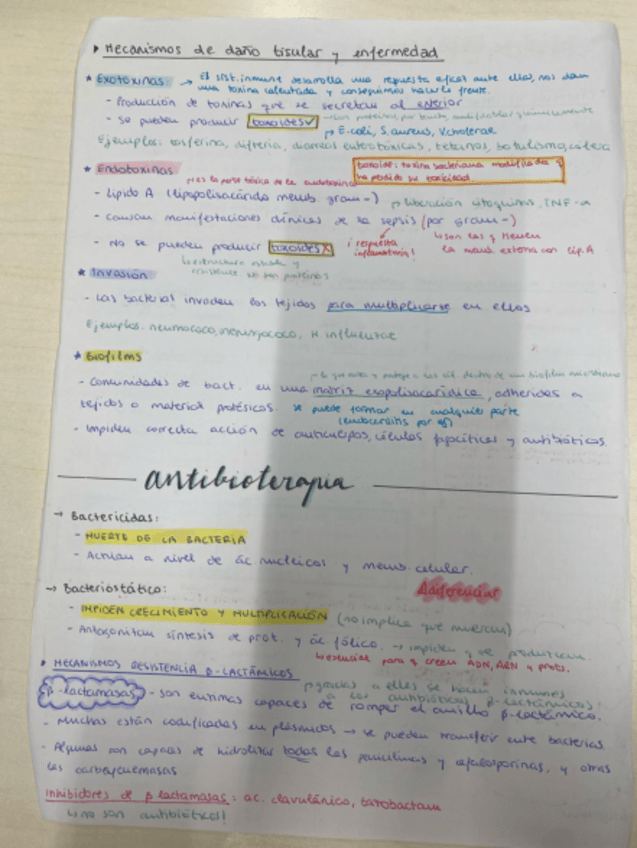 ▸ Mecanismos de daño tisular y enfermedad
★ Exotoxinas: → El sist. inmune desarrolla una respuesta eficaz ante ellas, nos dan
una toxina calentada y conseguimos hacerle frente.
- Producción de toxinas que se secretan al exterior
- Se pueden producir toxoides ✓
E-coli, S. aureus, V. cholerae
Ejemplos: tosferina, difteria, diarreas enterotóxicas, tetanos, botulismo, cólera
★ Endotoxinas:
toxoide: toxina bacteriana modificada q
ha perdido su toxicidad.
es la parte tóxica de la endotoxina
- Lípido A (lipopolisacárido memb. gram-)
liberación citoquinas, TNF-α
- Causan manifestaciones clínicas de la sepsis (por gram-)
- No se pueden producir toxoides X
¡respuesta
inflamatoria!
son las q tienen
la memb externa con lip. A
estructura estable y
resistente. No son proteínas
★ Invasión
- Las bacterias invaden los tejidos para multiplicarse en ellos
Ejemplos: neumococo, meningococo, H influenzae
★ Biofilms
- Comunidades de bact. en una matriz exopolisacarídica, adheridas a
tejidos o material protésicos. se puede formar en cualquier parte
(endocarditis por ej)
- Impiden correcta acción de anticuerpos, células fagocíticas y antibióticos.
antibioterapia
→ Bactericidas:
- MUERTE DE LA BACTERIA
- Actúan a nivel de ác nucleicos y memb. celular.
→ Bacteriostático:
- IMPIDEN CRECIMIENTO Y MULTIPLICACIÓN (no implica que mueran)
- Antagonizan síntesis de prot. y ác. fólico. → impiden q se produzcan
esencial para q creen ADN, ARN y prots.
▸ MECANISMOS RESISTENCIA β-LACTÁMICOS
gracias a ellas se hacen inmunes
a los antibióticos β-lactámicos!
β-lactamasas - son enzimas capaces de romper el anillo β-lactámico.
- Muchas están codificadas en plásmidos → se pueden transferir ente bacterias.
- Algunas son capaces de hidrolizar todas las penicilinas y cefalosporinas, y otras
las carbapenemasas
Inhibidores de β lactamasas: ac. clavulánico, tazobactam
no son antibióticos!